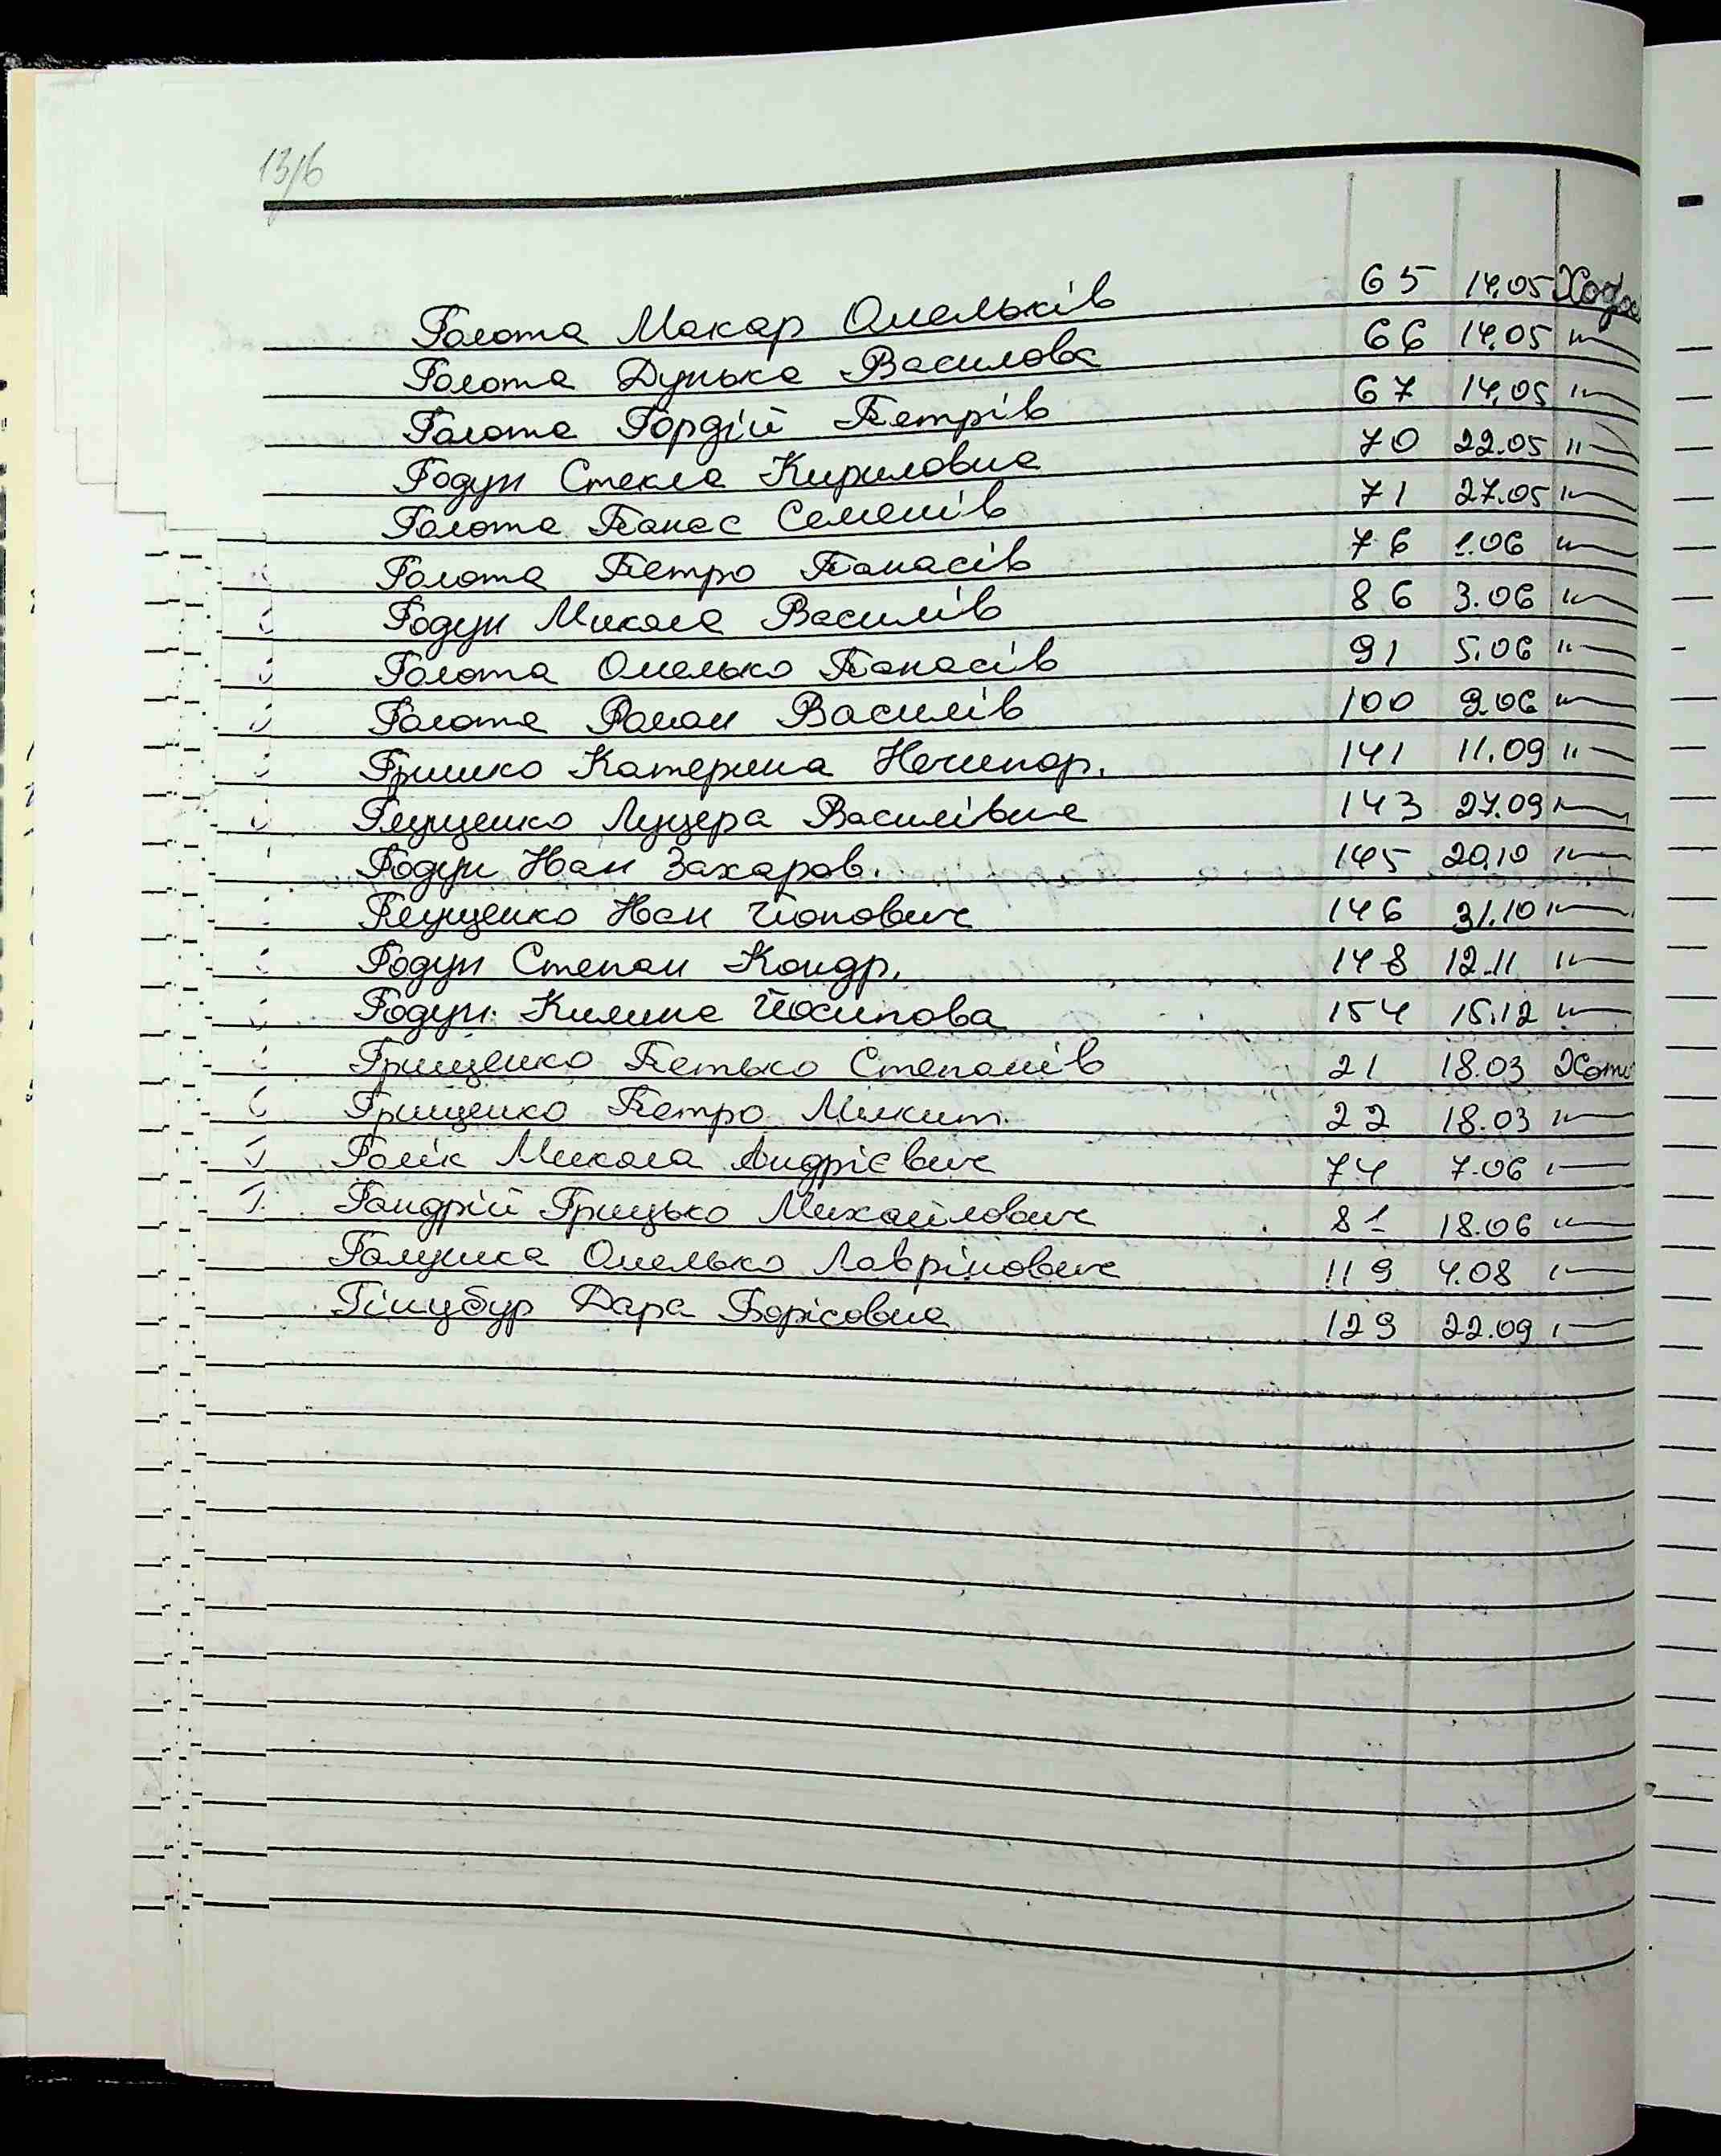 13/6
Голота Макар Омельків 65 14.05 Хода
Голота Дунька Василова 66 14.05 "—
Голота Гордій Петрів 67 14.05 "—
Годун Стекла Кириловна 70 22.05 "—
Голота Панас Семенів 71 27.05 "—
Голота Петро Панасів 76 1.06 "—
Годун Микола Василів 86 3.06 "—
Голота Омелько Панасів 91 5.06 "—
Голота Роман Василів 100 9.06 "—
Гришко Катерина Нечипор. 141 11.09 "—
Глущенко Луцера Василівна 143 27.09 "—
Годун Іван Захаров. 145 20.10 "—
Глущенко Іван Йопович 146 31.10 "—
Годун Степан Кондр. 148 12.11 "—
Годун Килина Йосипова 154 15.12 "—
Грищенко Петько Степанів 21 18.03 Хоти
Грищенко Петро Микит. 22 18.03 "—
Голік Микола Андрієвич 74 7.06 "—
Гандрій Грицько Михайлович 81 18.06 "—
Галушка Омелько Лаврінович 119 4.08 "—
Гінцбур Дара Борісовна 129 22.09 "—